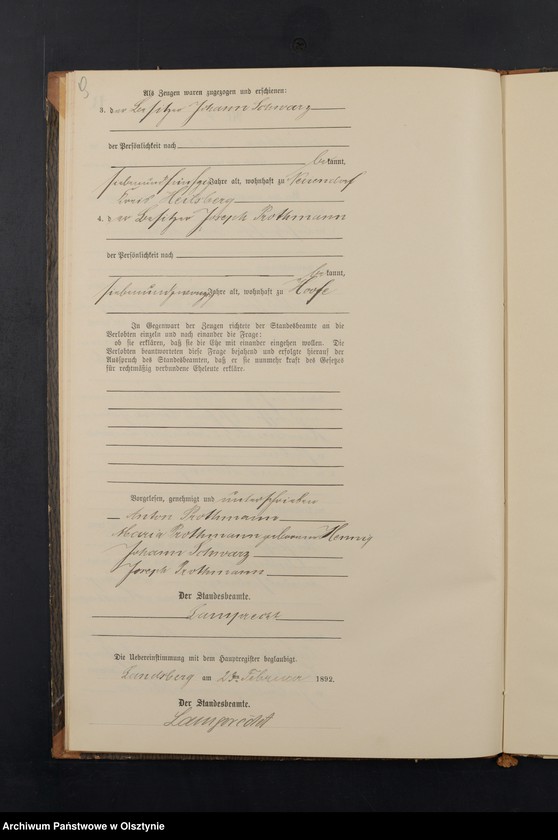 Als Zeugen waren zugezogen und erschienen:
3. der Besitzer Johann Schwarz
der Persönlichkeit nach
bekannt,
siebenundfünfzig Jahre alt, wohnhaft zu
Kreis Heilsberg
4. der Besitzer Joseph Rothmann
der Persönlichkeit nach
bekannt,
siebenundzwanzig Jahre alt, wohnhaft zu Hoofe
In Gegenwart der Zeugen richtete der Standesbeamte an die
Verlobten einzeln und nach einander die Frage:
ob sie erklären, daß sie die Ehe mit einander eingehen wollen. Die
Verlobten beantworteten diese Frage bejahend und erfolgte hierauf der
Ausspruch des Standesbeamten, daß er sie nunmehr kraft des Gesetzes
für rechtmäßig verbundene Eheleute erkläre.
Vorgelesen, genehmigt und unterschrieben
Anton Rothmann
Maria Rothmann geborene Hennig
Johann Schwarz
Joseph Rothmann
Der Standesbeamte.
Lamprecht
Die Uebereinstimmung mit dem Hauptregister beglaubigt.
Landsberg am Februar 1892.
Der Standesbeamte.
Lamprecht
Archiwum Państwowe w Olsztynie